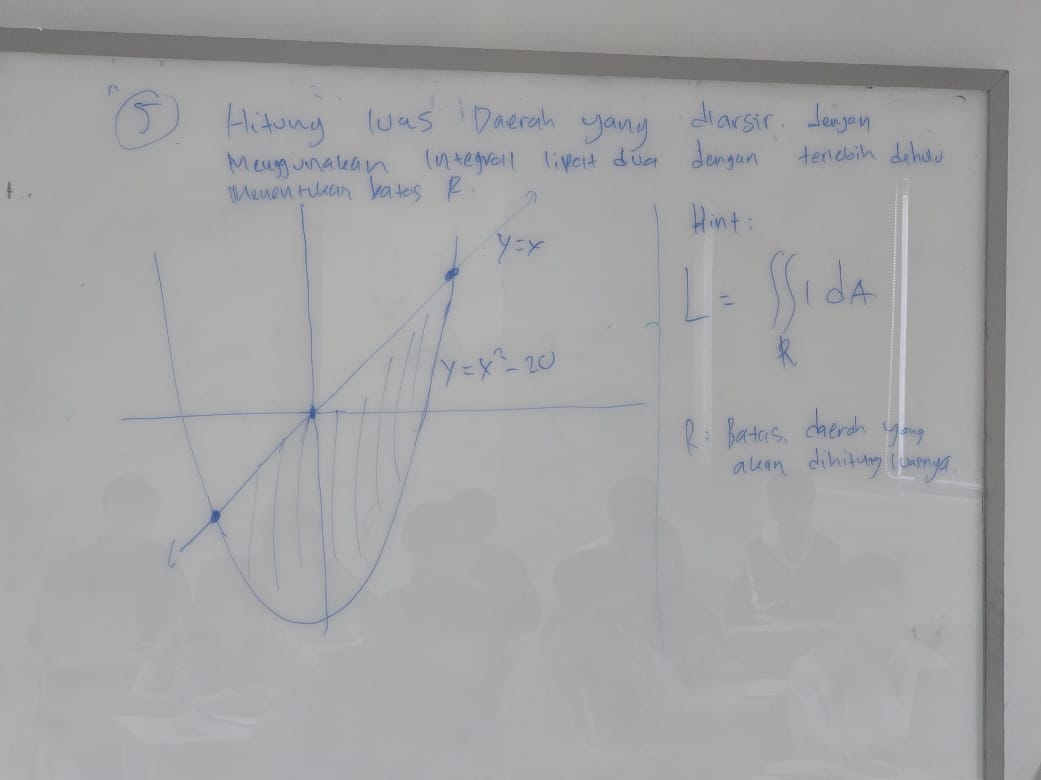 5 Hitung luas Daerah yang diarsir. dengan
Menggunakan Integrall lipat dua dengan terlebih dahulu
Menentukan batas R.
Hint:
y=x
L = ∬ 1 dA
R
y=x²-20
R: Batas daerah yang
akan dihitung luasnya.